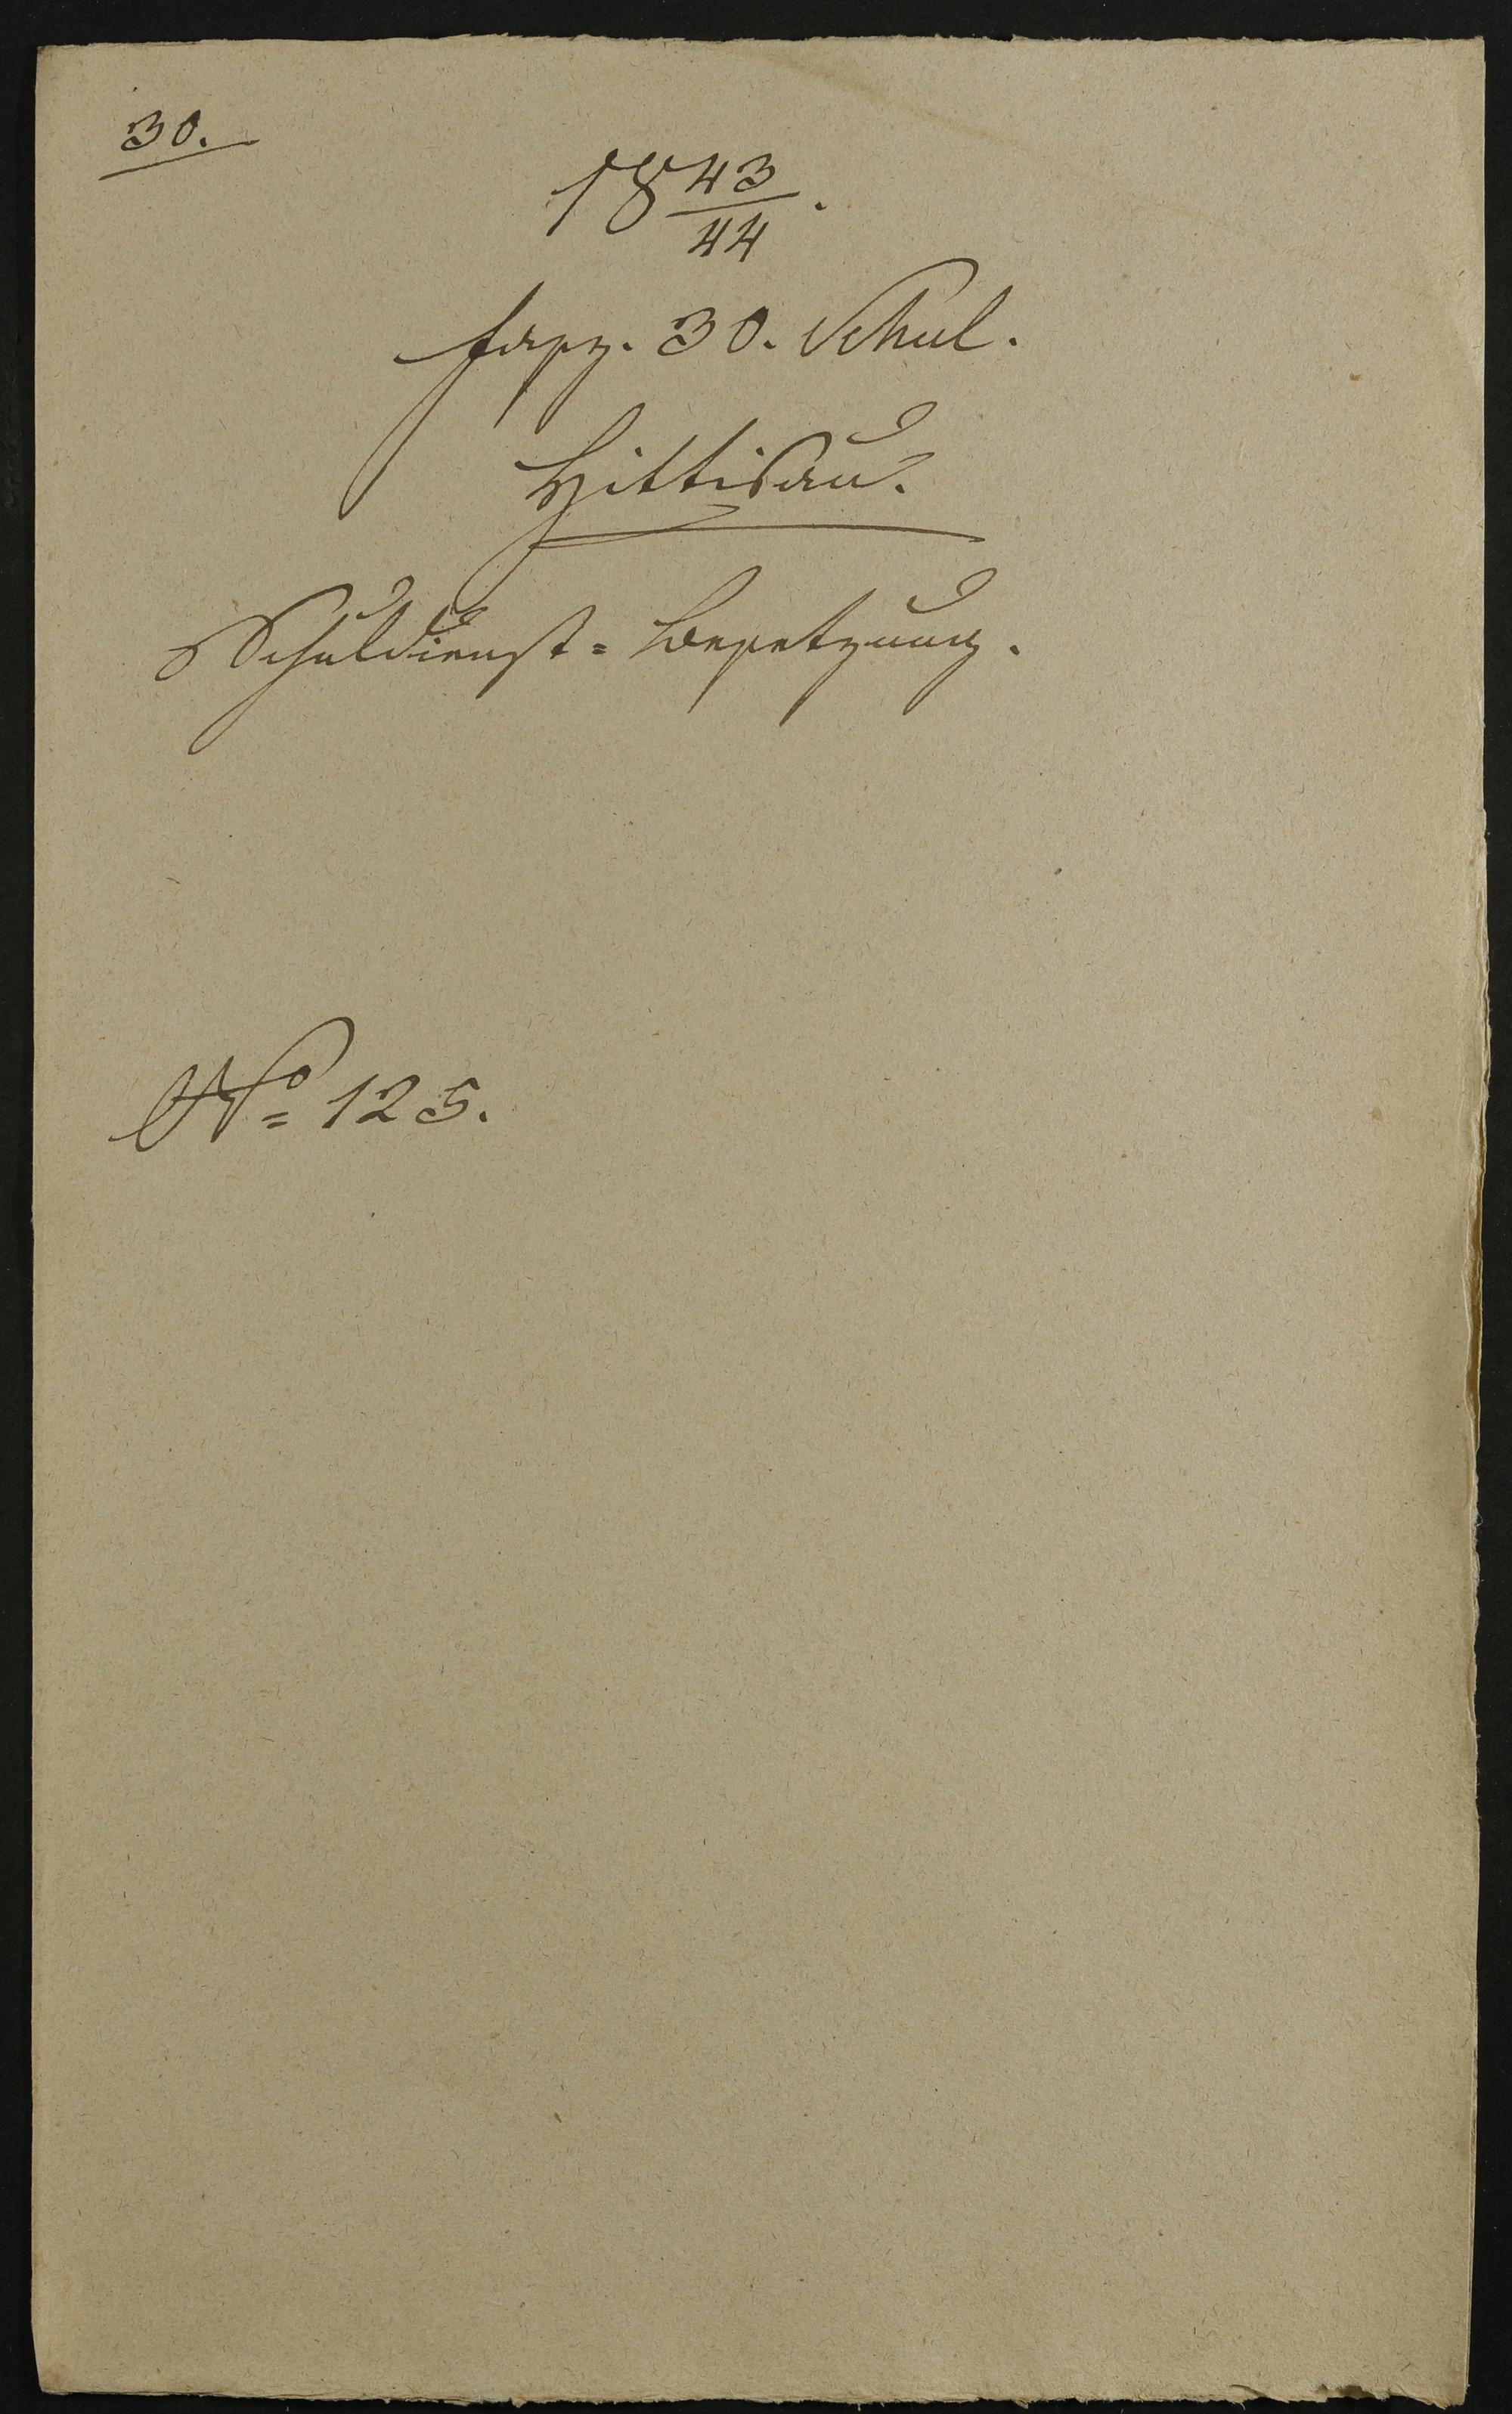 30.
18 43/44.
fasz. 30. Schul.
Hittisau.
Schuldienst=besetzung.
No 125.